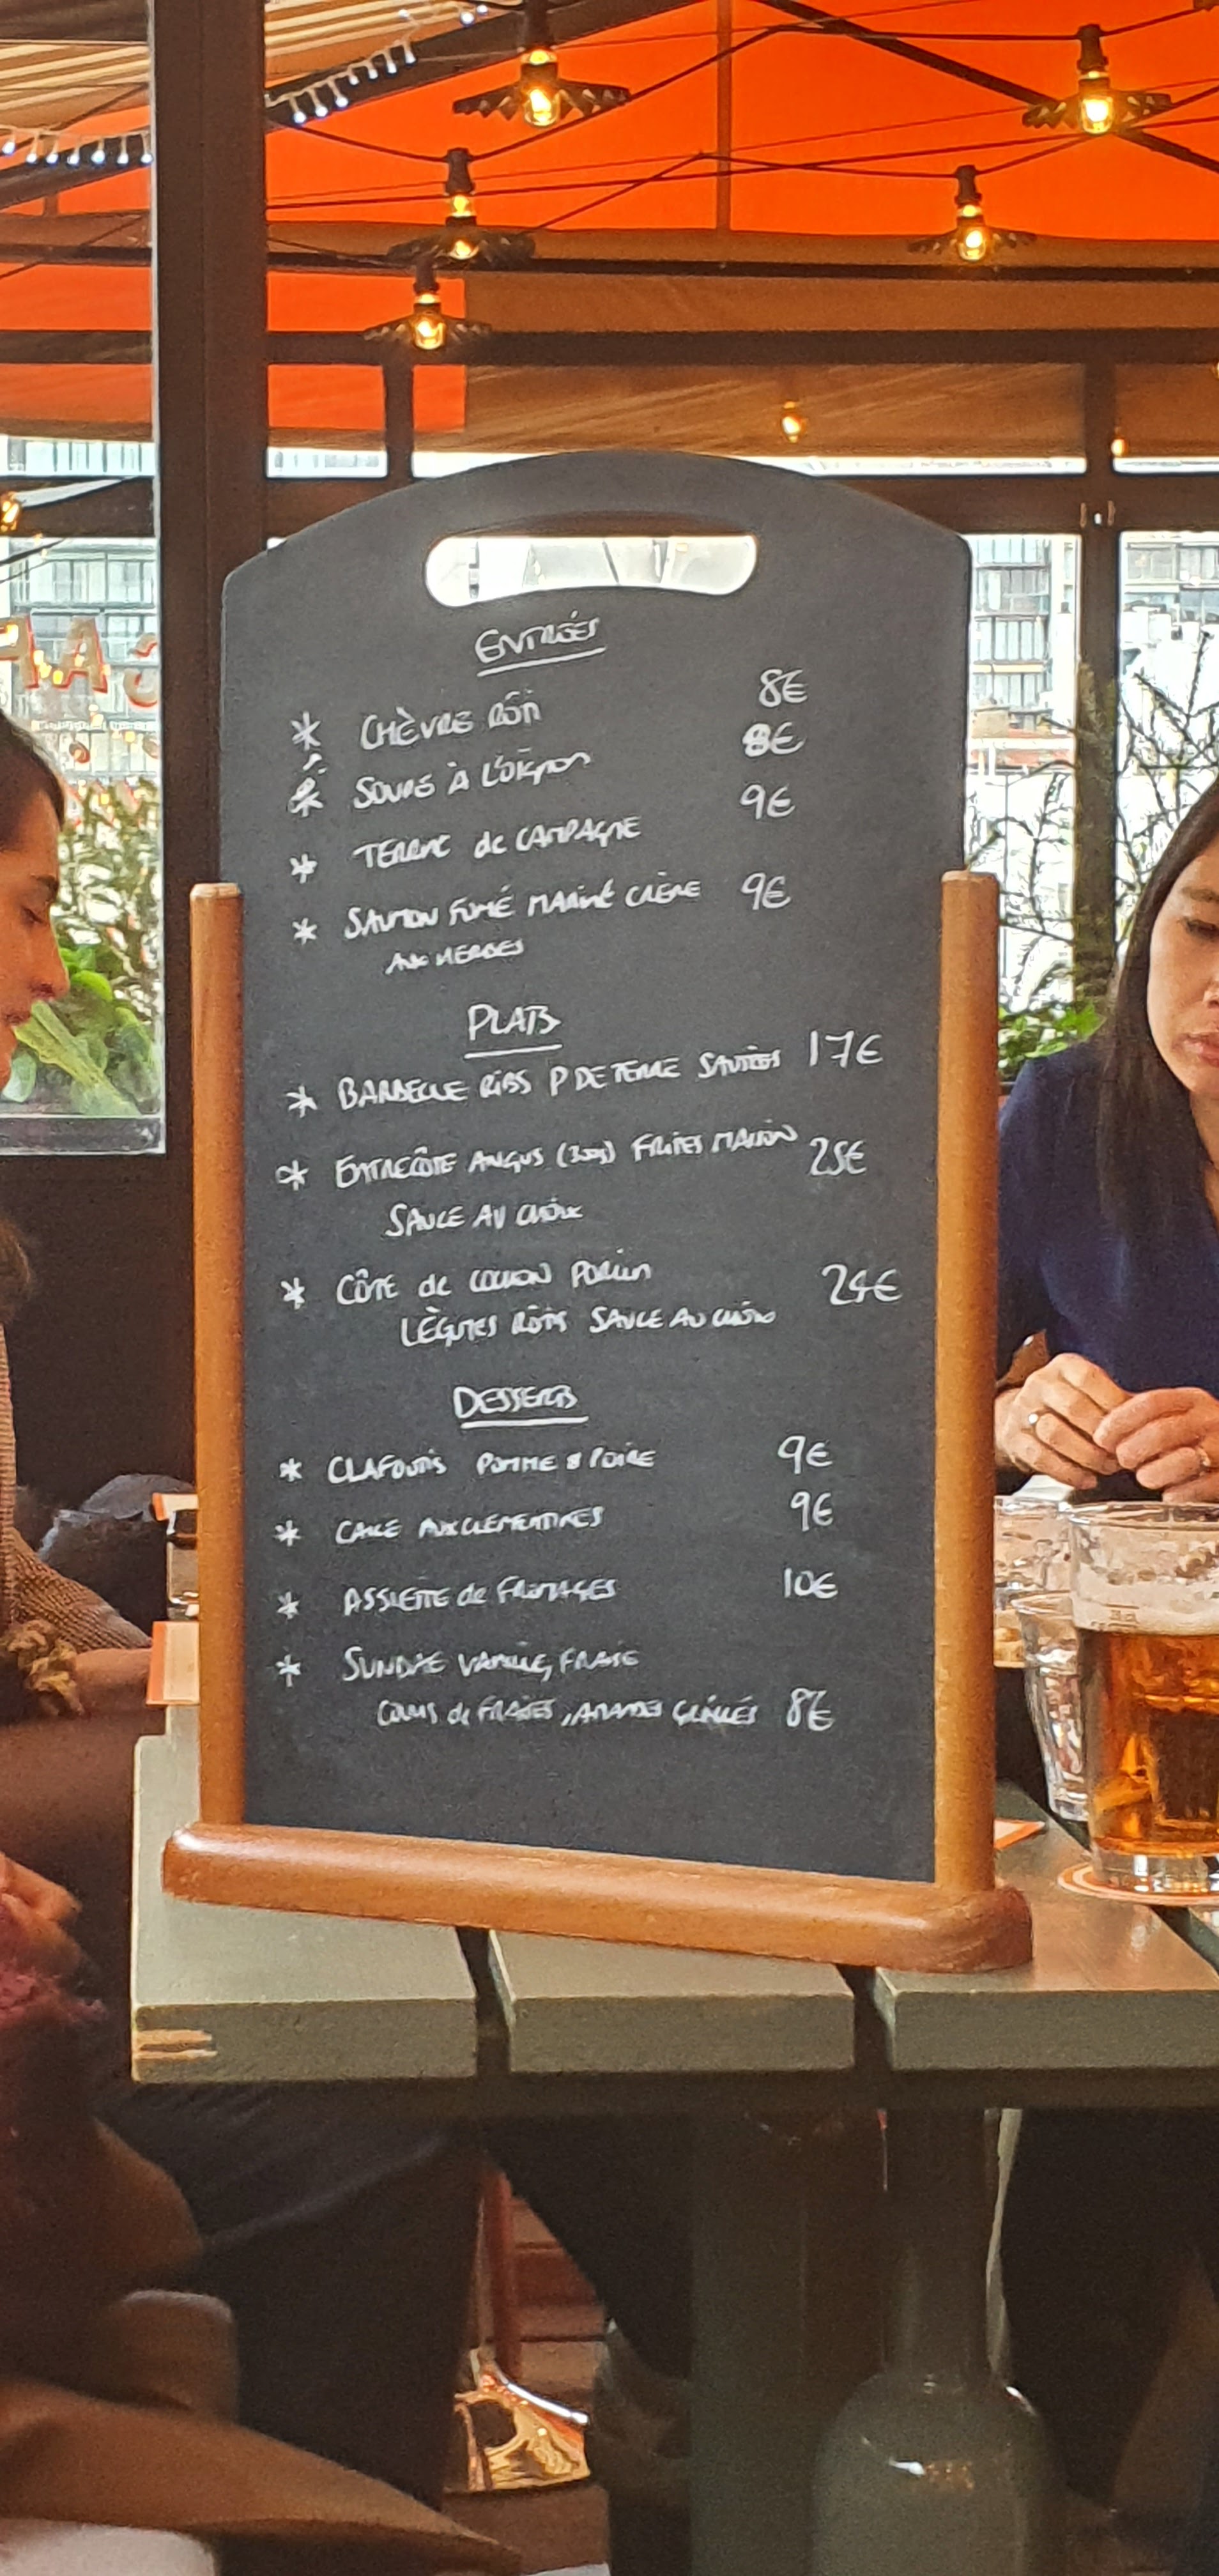 ENTRÉES
* CHÈVRE RÔTI 8€
* SOUPE À L'OIGNON 8€
* TERRINE de CAMPAGNE 9€
* SAUMON FUMÉ MARINÉ CRÈME 9€
AUX HERBES
PLATS
* BARBECUE RIBS P DE TERRE SAUTÉES 17€
* ENTRECÔTE ANGUS (300g) FRITES MAISON 25€
SAUCE AU CHOIX
* CÔTE de COCHON 24€
LÉGUMES RÔTIS SAUCE AU CHOIX
DESSERTS
* CLAFOUTIS POMME & POIRE 9€
* CAKE AUX CLÉMENTINES 9€
* ASSIETTE de FROMAGES 10€
* SUNDAE VANILLE, FRAISE
COULIS de FRAISES, AMANDES GRILLÉES 8€